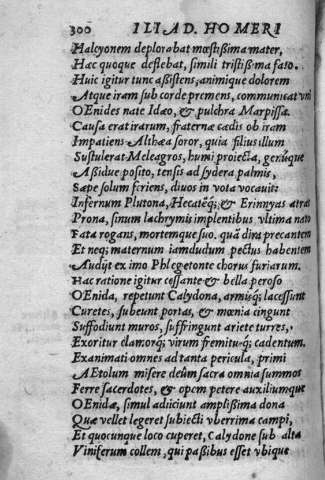 300 ILIAD. HOMERI
Halcyonem deplorabat mœstißima mater,
Hac quoque deflebat, simili tristißma faso.
Huic igitur tunc aßistens, animique dolorem
Atque iram sub corde premens, communicat vni
OEnides nate Idæo, & pulchra Marpissa.
Causa erat irarum, fraternæ cædis ob iram
Impatiens Althæa soror, quia filius illum
Sustulerat Meleagros, humi proiecta, genúque
Aßiduè posito, tensis ad sydera palmis,
Sæpe solum feriens, diuos in vota vocauit:
Infernum Plutona, Hecatéq; & Erinnyas atras
Prona, sinum lachrymis implentibus vltima nato
Fata rogans, mortemque suo. quã dira precantem
Et neq; maternum iamdudum pectus habentem
Audijt ex imo Phlegetonte chorus furiarum.
Hac ratione igitur cessante & bella peroso
OEnida, repetunt Calydona, armisq; lacessunt
Curetes, subeunt portas, & mœnia cingunt
Suffodiunt muros, suffringunt ariete turres,
Exoritur clamorq; virum fremitusq; cadentum.
Exanimati omnes ad tanta pericula, primi
AEtolum misere deûm sacra omnia summos
Ferre sacerdotes, & opem petere auxiliumque
OEnidæ, simul adiiciunt amplißima dona
Quæ vellet legeret subiecti vberrima campi,
Et quocunque loco cuperet, Calydone sub alta
Viniferum collem, qui paßibus esset vbique